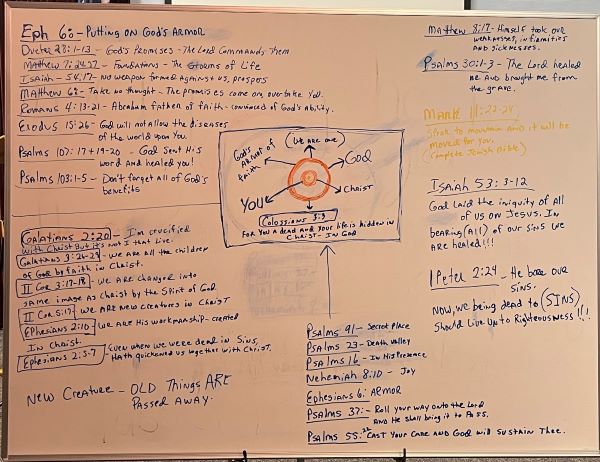 Eph 6:- Putting on God's Armor
Dueter 28:1-13 - God's Promises - The Lord Commands Them
Matthew 7:24-27 - Foundations - The Storms of Life
Isaiah - 54:17 - No weapon formed against us, prospers
Matthew 6: - Take no thought - The promises come on, overtake you.
Romans 4:13-21 - Abraham father of faith - convinced of God's ability.
Exodus 15:26 - God will not allow the diseases
of the world upon you.
Psalms 107:17+19-20 - God sent His
word and healed you!
Psalms 103:1-5 - Don't forget all of God's
benefits
Galatians 2:20 - I'm crucified
with Christ But it's not I that live.
Galatians 3:26-29 - We are all the children
of God by faith in Christ.
II Cor 3:17-18 - We are changed into
same image as Christ by the Spirit of God.
II Cor 5:17 - We are new creatures in Christ
Ephesians 2:10 - We are His workmanship - created
In Christ.
Ephesians 2:5-7 - Even when we were dead in sins,
Hath quickened us together with Christ.
New Creature - OLD Things ARE
Passed away.
(We are one)
God's Armor of
faith
God
You
Christ
Colossians 3:3
For you a dead and your life is hidden in
Christ - in God
Psalms 91 - Secret Place
Psalms 23 - Death Valley
Psalms 16 - In His Presence
Nehemiah 8:10 - Joy
Ephesians 6: Armor
Psalms 37: - Roll your way onto the Lord
And He shall bring it to Pass.
Psalms 55:22 Cast your care and God will sustain Thee.
Matthew 8:17 - Himself took our
weaknesses, infirmities
and sicknesses.
Psalms 30:1-3 - The Lord healed
me and brought me from
the grave.
Mark 11:22-24
to mountain and it will be
moved for you.
(Complete Jewish Bible)
Isaiah 53:3-12
God laid the iniquity of all
of us on Jesus. In
bearing (All) of our sins we
are healed!!!
1 Peter 2:24 - He bore our
sins.
Now, we being dead to (SINS)
Should Live Up to Righteousness!!!